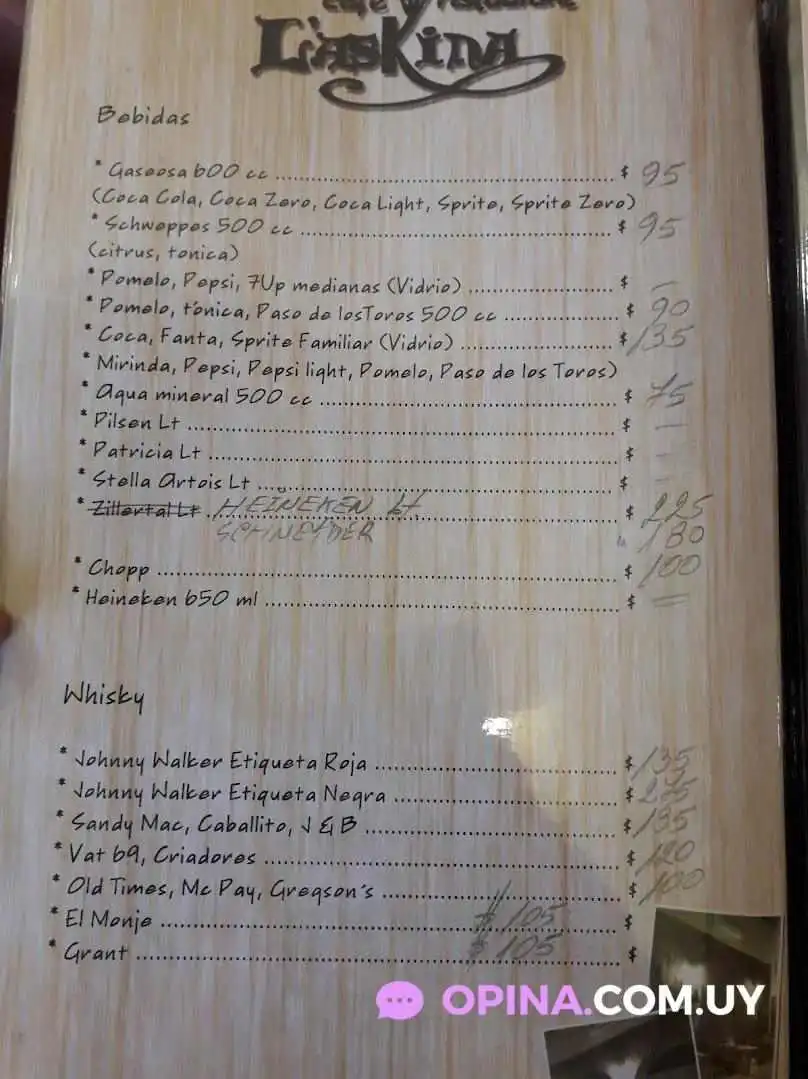 L'asKina
Bebidas
* Gaseosa 600 cc ........ $ 95
(Coca Cola, Coca Zero, Coca Light, Sprite, Sprite Zero)
* Schweppes 500 cc ........ $ 95
(citrus, tonica)
* Pomelo, Pepsi, 7Up medianas (Vidrio) ........ $ —
* Pomelo, tónica, Paso de losToros 500 cc ........ $ 90
* Coca, Fanta, Sprite Familiar (Vidrio) ........ $ 135
* Mirinda, Pepsi, Pepsi light, Pomelo, Paso de los Toros)
* Agua mineral 500 cc ........ $ 75
* Pilsen Lt ........ $ —
* Patricia Lt ........ $ —
* Stella Artois Lt ........ $ —
* Zillertal Lt HEINEKEN Lt. ........ $ 225
SCHNEIDER " 180
* Chopp ........ $ 100
* Heineken 650 ml ........ $ =
Whisky
* Johnny Walker Etiqueta Roja ........ $ 135
* Johnny Walker Etiqueta Negra ........ $
* Sandy Mac, Caballito, J & B ........ $ 135
* Vat 69, Criadores ........ $ 120
* Old Times, Mc Pay, Gregson's ........ $ 100
* El Monje ........ $ 105 $
* Grant ........ $ 105 $
OPINA.COM.UY